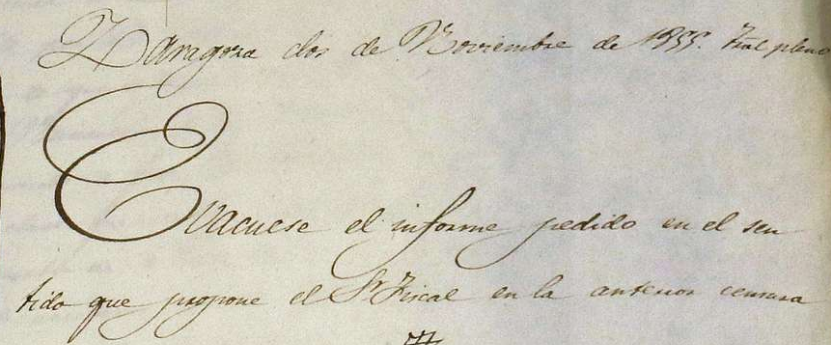 Zaragoza dos de Noviembre de 1855. Tral pleno
Evacuese el informe pedido en el sen
tido que propone el Sr Fiscal en la anterior censura